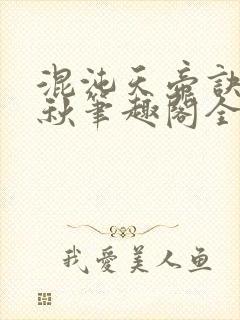 混沌天帝诀
秋笔趣阁全
我爱美人鱼